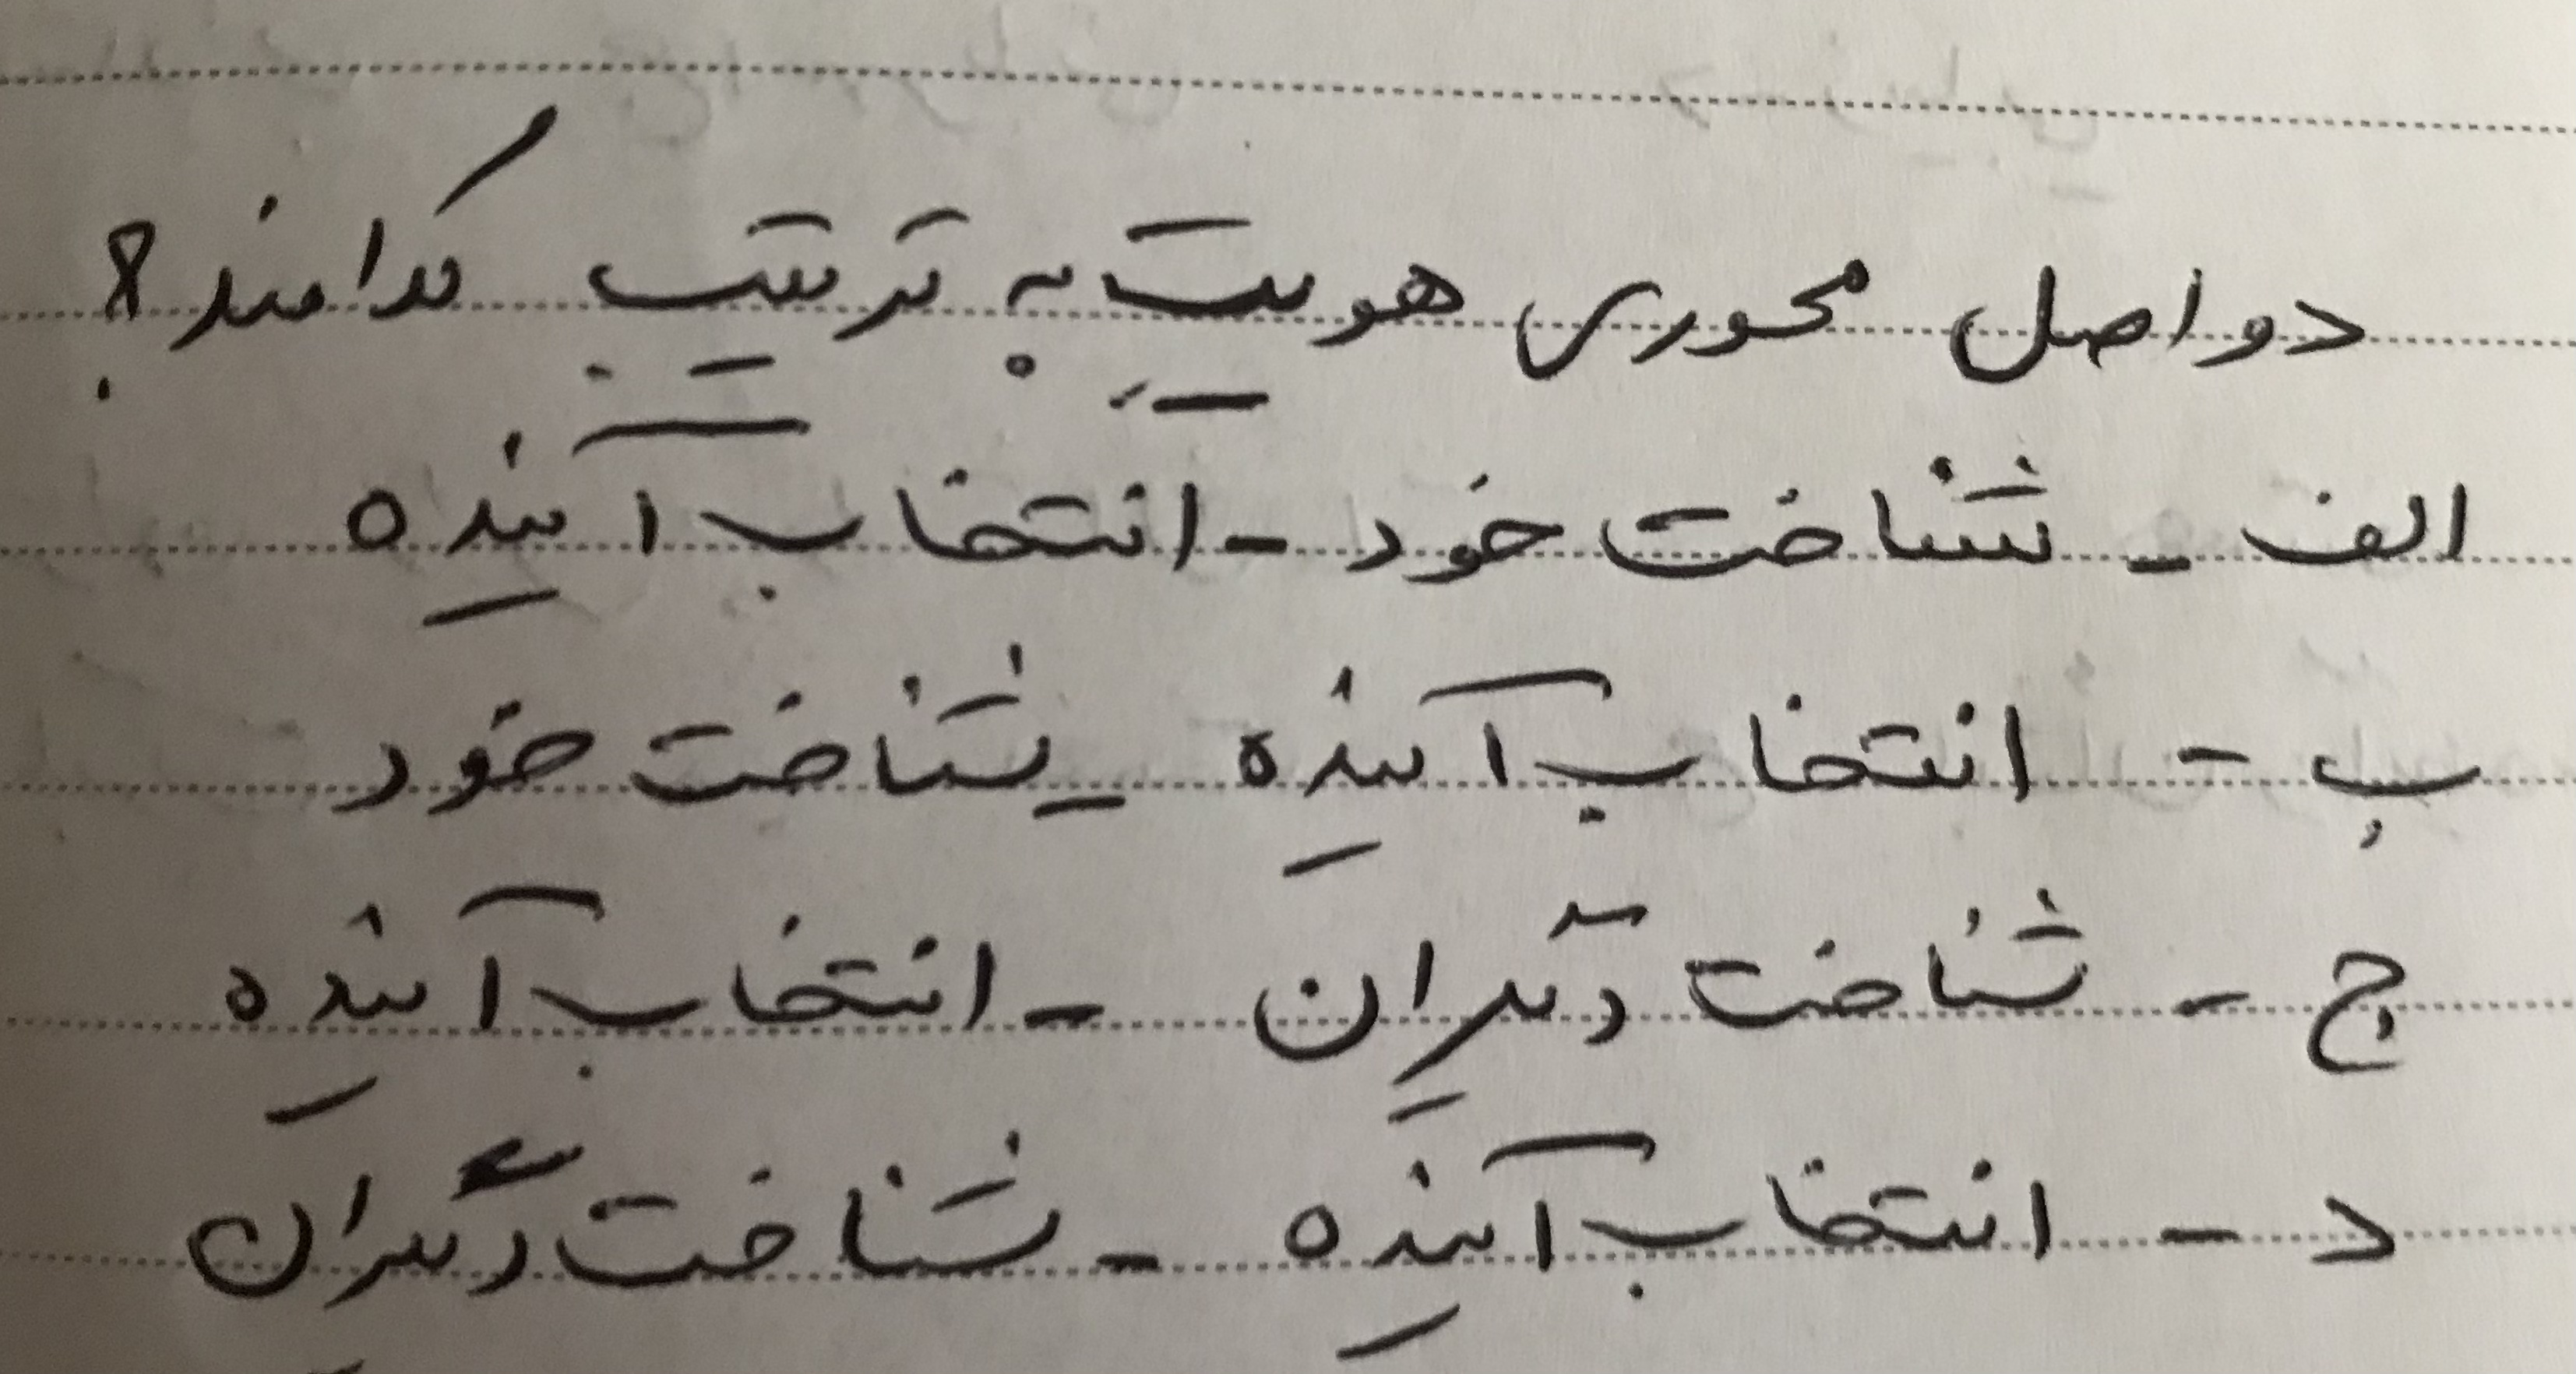 دو اصل محوری هویت به ترتیب کدامند؟
الف - شناخت خود - انتخاب آینده
ب - انتخاب آینده - شناخت خود
ج - شناخت دیگران - انتخاب آینده
د - انتخاب آینده - شناخت دیگران